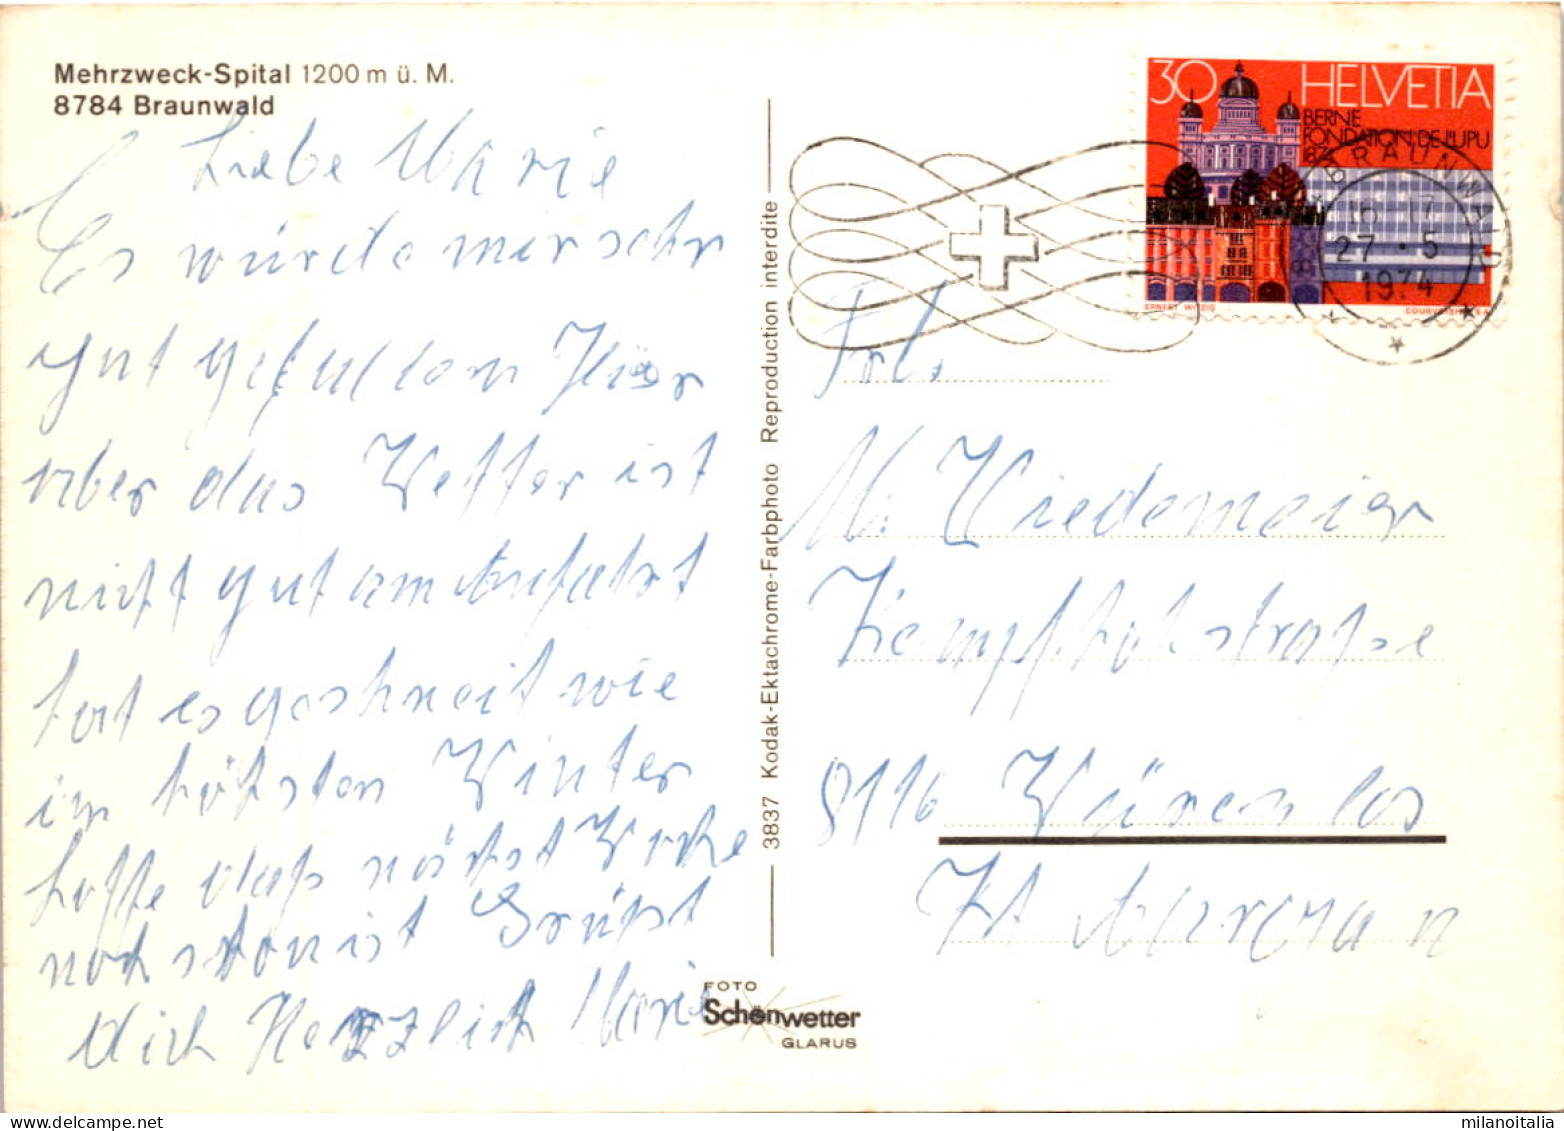 Mehrzweck-Spital 1200 m ü. M.
8784 Braunwald
Liebe Marie
Es würde mir sehr
gut gefallen Hier
aber das Wetter ist
nicht gut am Auffahrt
hat es geschneit wie
im höhsten Winter
hoffe daß nächst Woche
noch schon ist Grüßt
dich Herzlich Marie
3837 Kodak-Ektachrome-Farbphoto Reproduction interdite
FOTO
Schönwetter
GLARUS
30 HELVETIA
BERNE
FONDATION DE L'UPU
1874
ERNST WITZIG
COURVOISIER S.A.
8784 BRAUNWALD
16-17
27.5
1974
Frl.
M. Wiedemeier
Kempfhofstraße
8116 Würenlos
Kt Aargau
milanoitalia